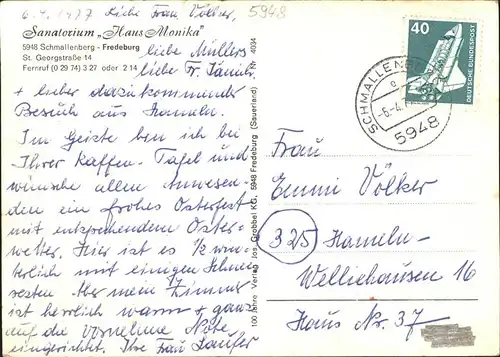 6.4.1977 Liebe Frau Völker, 5948
Sanatorium „Haus Monika"
5948 Schmallenberg - Fredeburg
St. Georgstraße 14
Fernruf (0 29 74) 3 27 oder 2 14
liebe Müllers
liebe Fr.
+ lieber dazukommender
Besuch aus Hameln.
Im Geiste bin ich bei
Ihrer Kaffee-Tafel und
wünsche allen Anwesen-
den ein frohes Osterfest
mit entsprechendem Oster-
wetter. Hier ist es 1/2 win-
terlich mit einigen Schnee-
resten. Aber mein Zimmer
ist herrlich warm + ganz
auf die vornehme Note
eingerichtet. Ihre Frau
100 Jahre Verlag Jos. Grobbel KG, 5948 Fredeburg (Sauerland) Nr. 4034
40
DEUTSCHE BUNDESPOST
SCHMALLENBERG
-6.-4.77
5948
Frau
Emmi Völker
325 Hameln-
Welliehausen 16
Haus Nr. 37